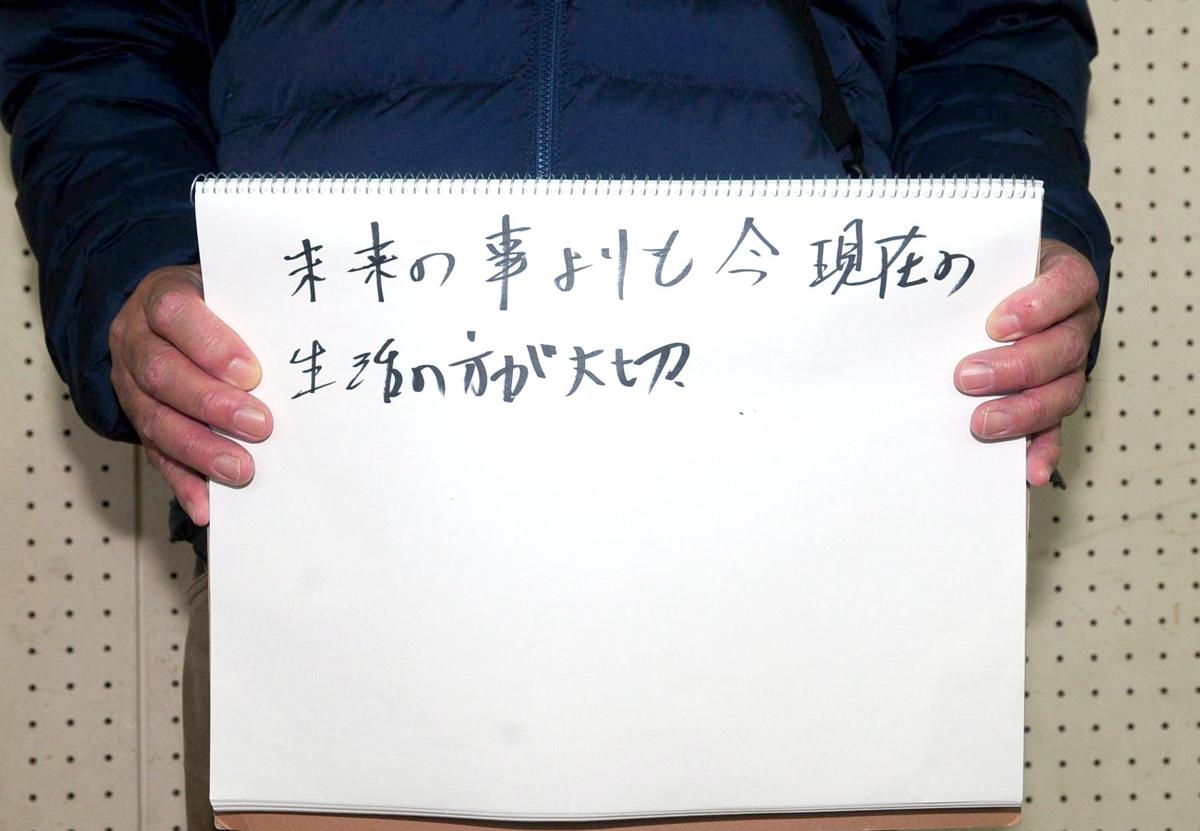 未来の事よりも今現在の
生活の方が大切